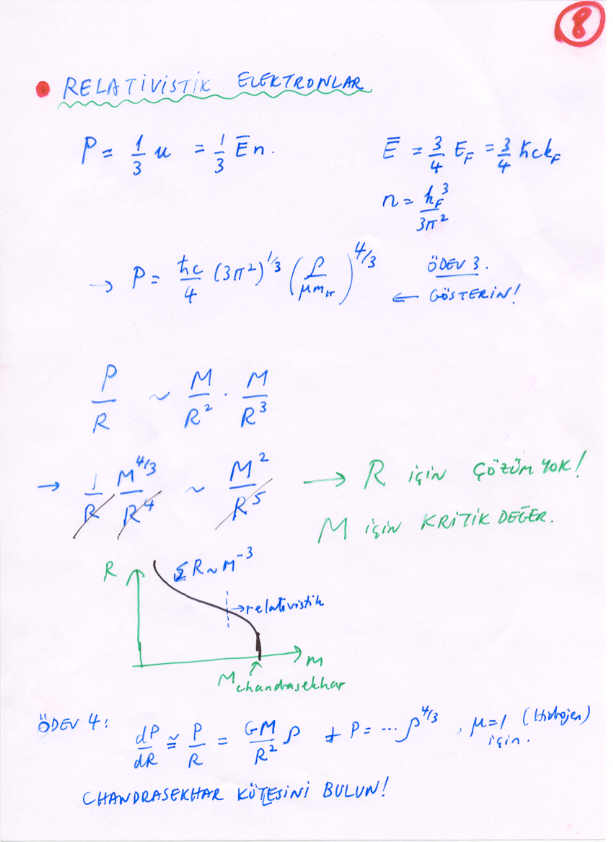 8
• RELATIVISTIK ELEKTRONLAR
P = 1/3 u = 1/3 Ē n. Ē = 3/4 E_F = 3/4 ħck_F
n = k_F^3/3π^2
→ P = ħc/4 (3π^2)^1/3 (ρ/μm_H)^4/3 ÖDEV 3.
← GÖSTERİN!
P/R ~ M/R^2 · M/R^3
→ 1/R M^4/3/R^4 ~ M^2/R^5 → R için ÇÖZÜM YOK!
M için KRİTİK DEĞER.
R R~M^-3
→relativistik
M
M chandrasekhar
ÖDEV 4: dP/dR ≅ P/R = GM/R^2 ρ + P = ... ρ^4/3, μ=1 (Hidrojen)
için.
CHANDRASEKHAR KÜTLESİNİ BULUN!